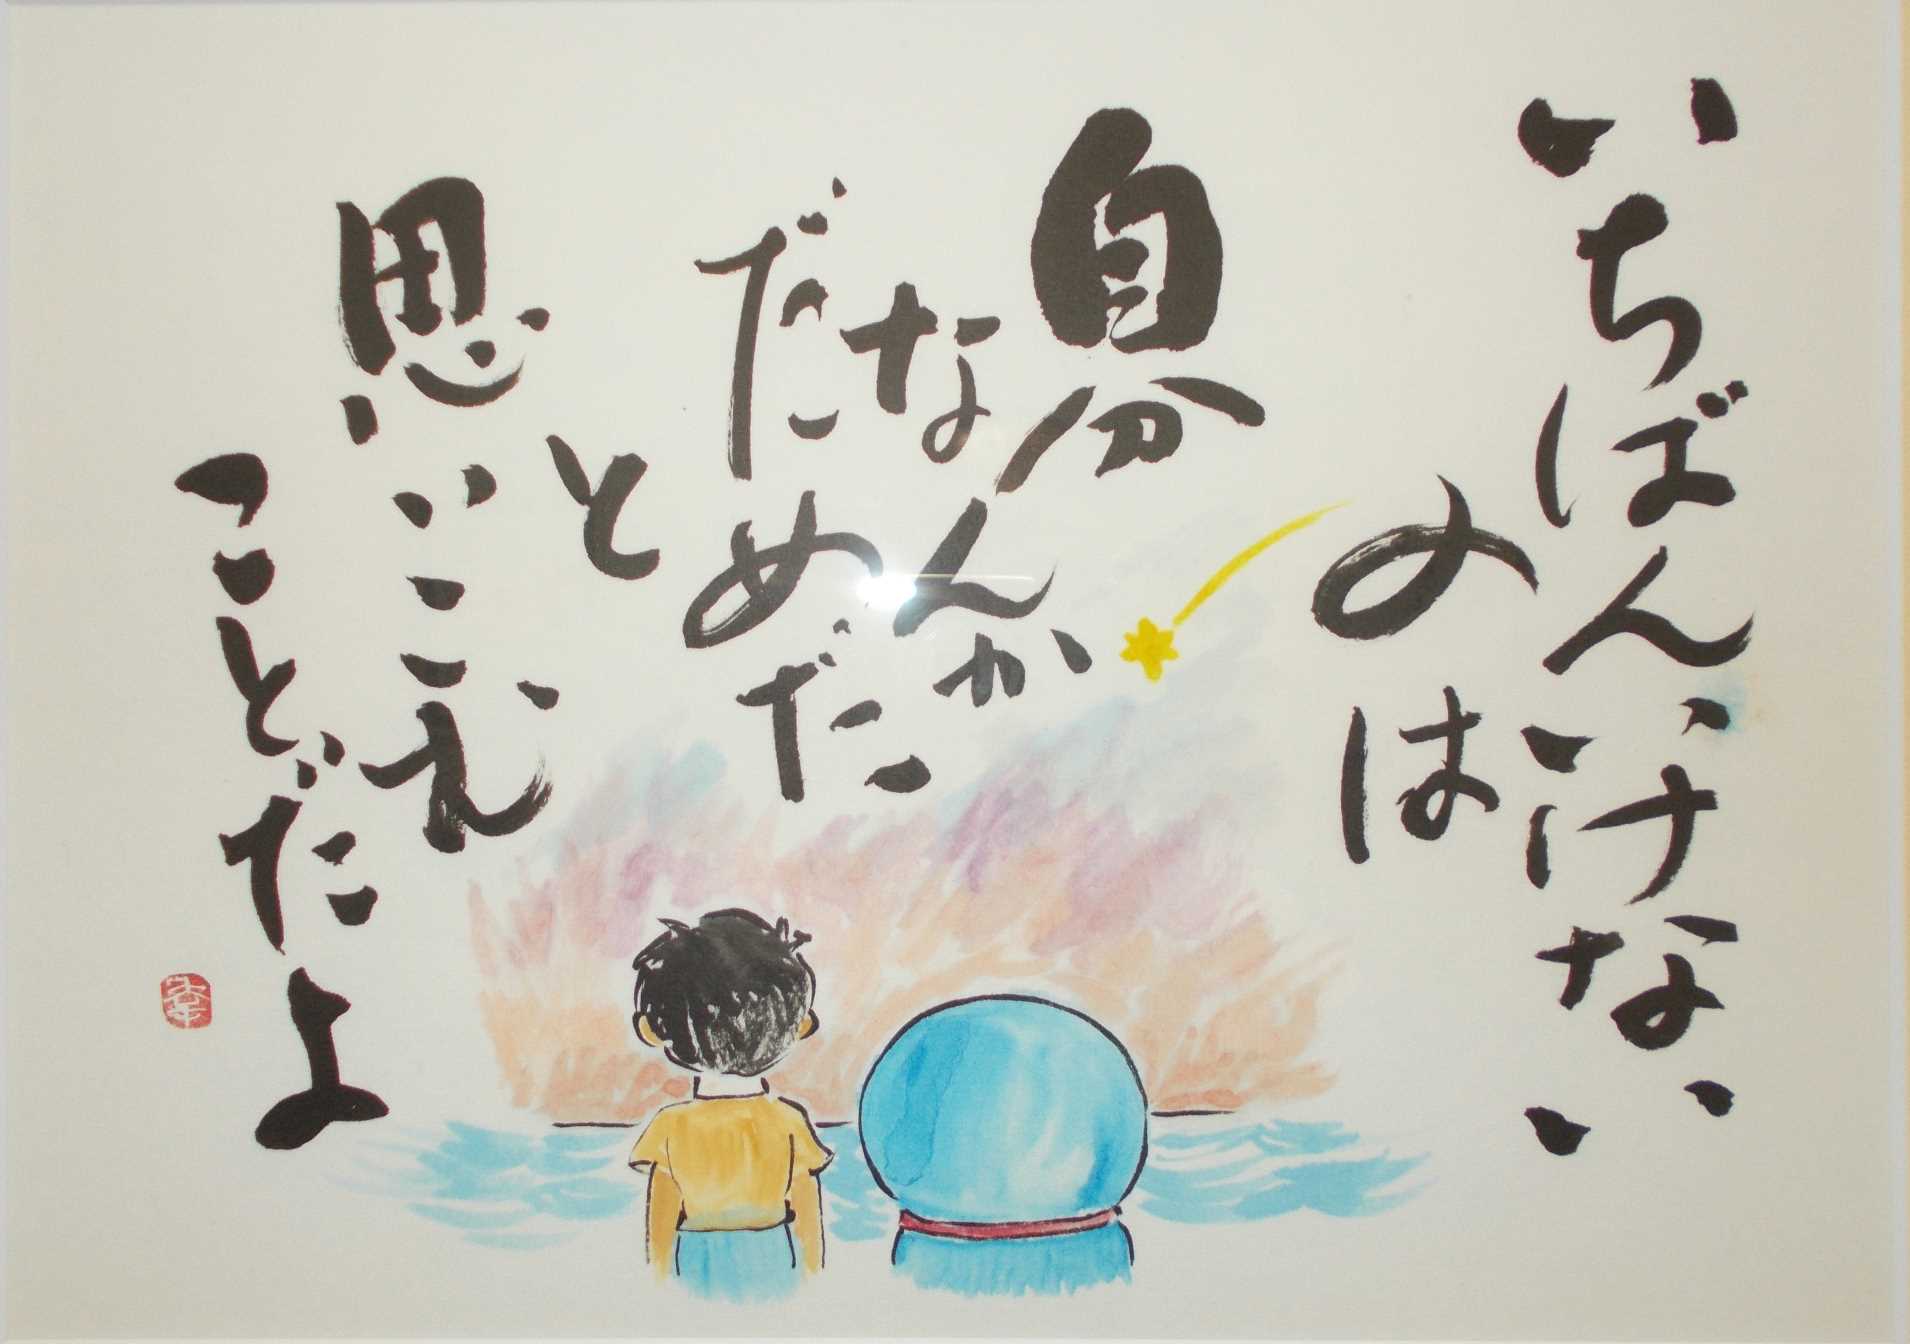 いちばんいけない
のは
自分なんか
だめだ
と
思いこむ
ことだよ
幸